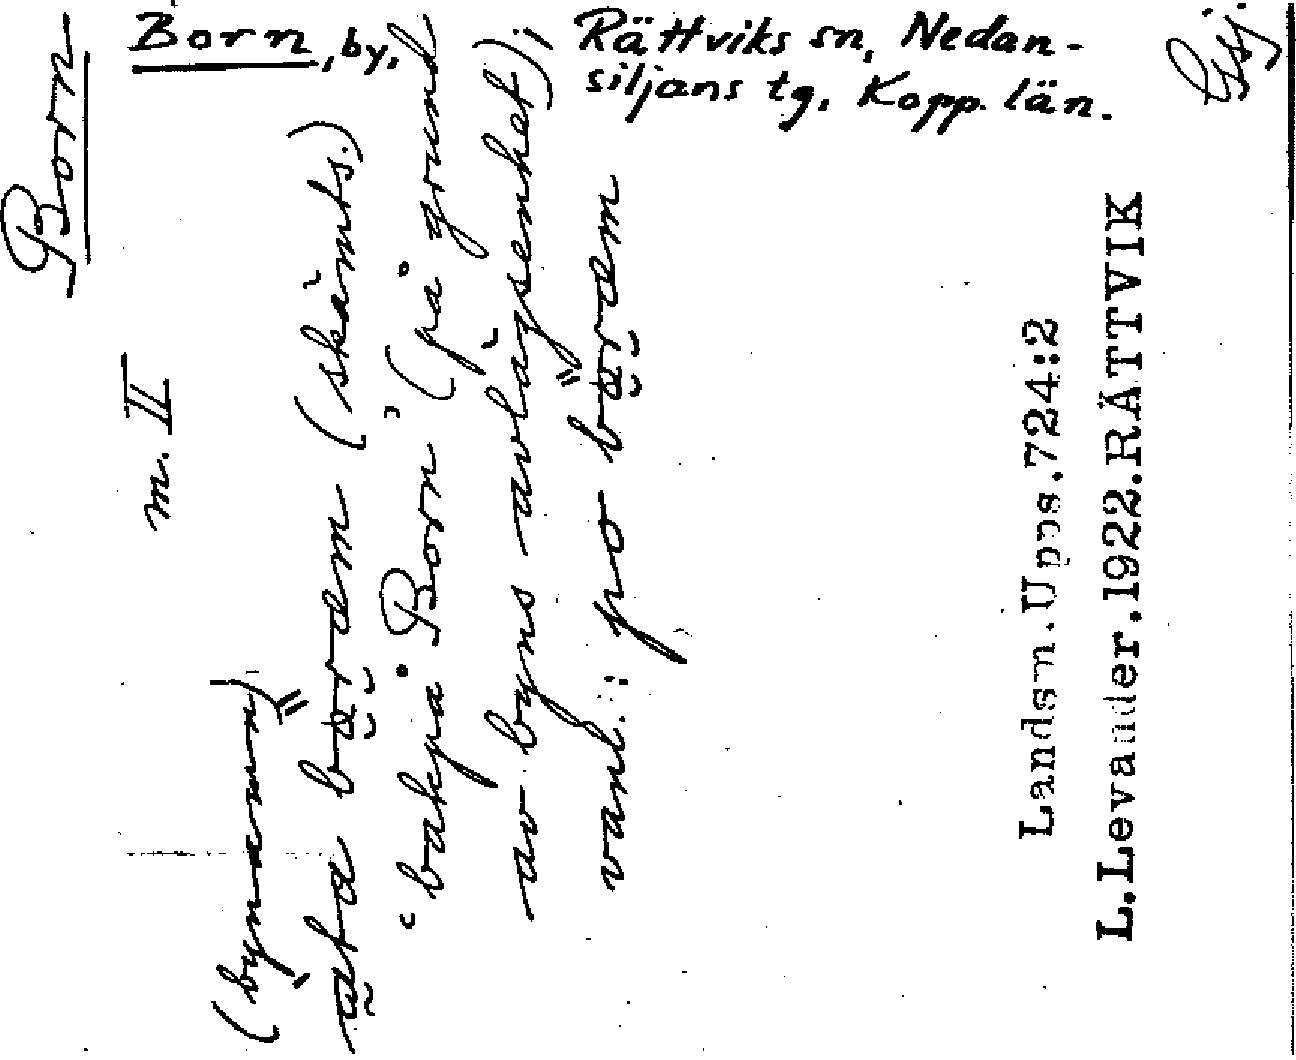 Born, by, Rättviks sn, Nedan-
siljans tg. Kopp. län.
Born
m. II
(bynamn)
bakpå Born (på grund
av byns avlägsenhet);
(skämts.)
vanl.: po
Landsm.Upps.724:2
L.Levander.1922.RÄTTVIK